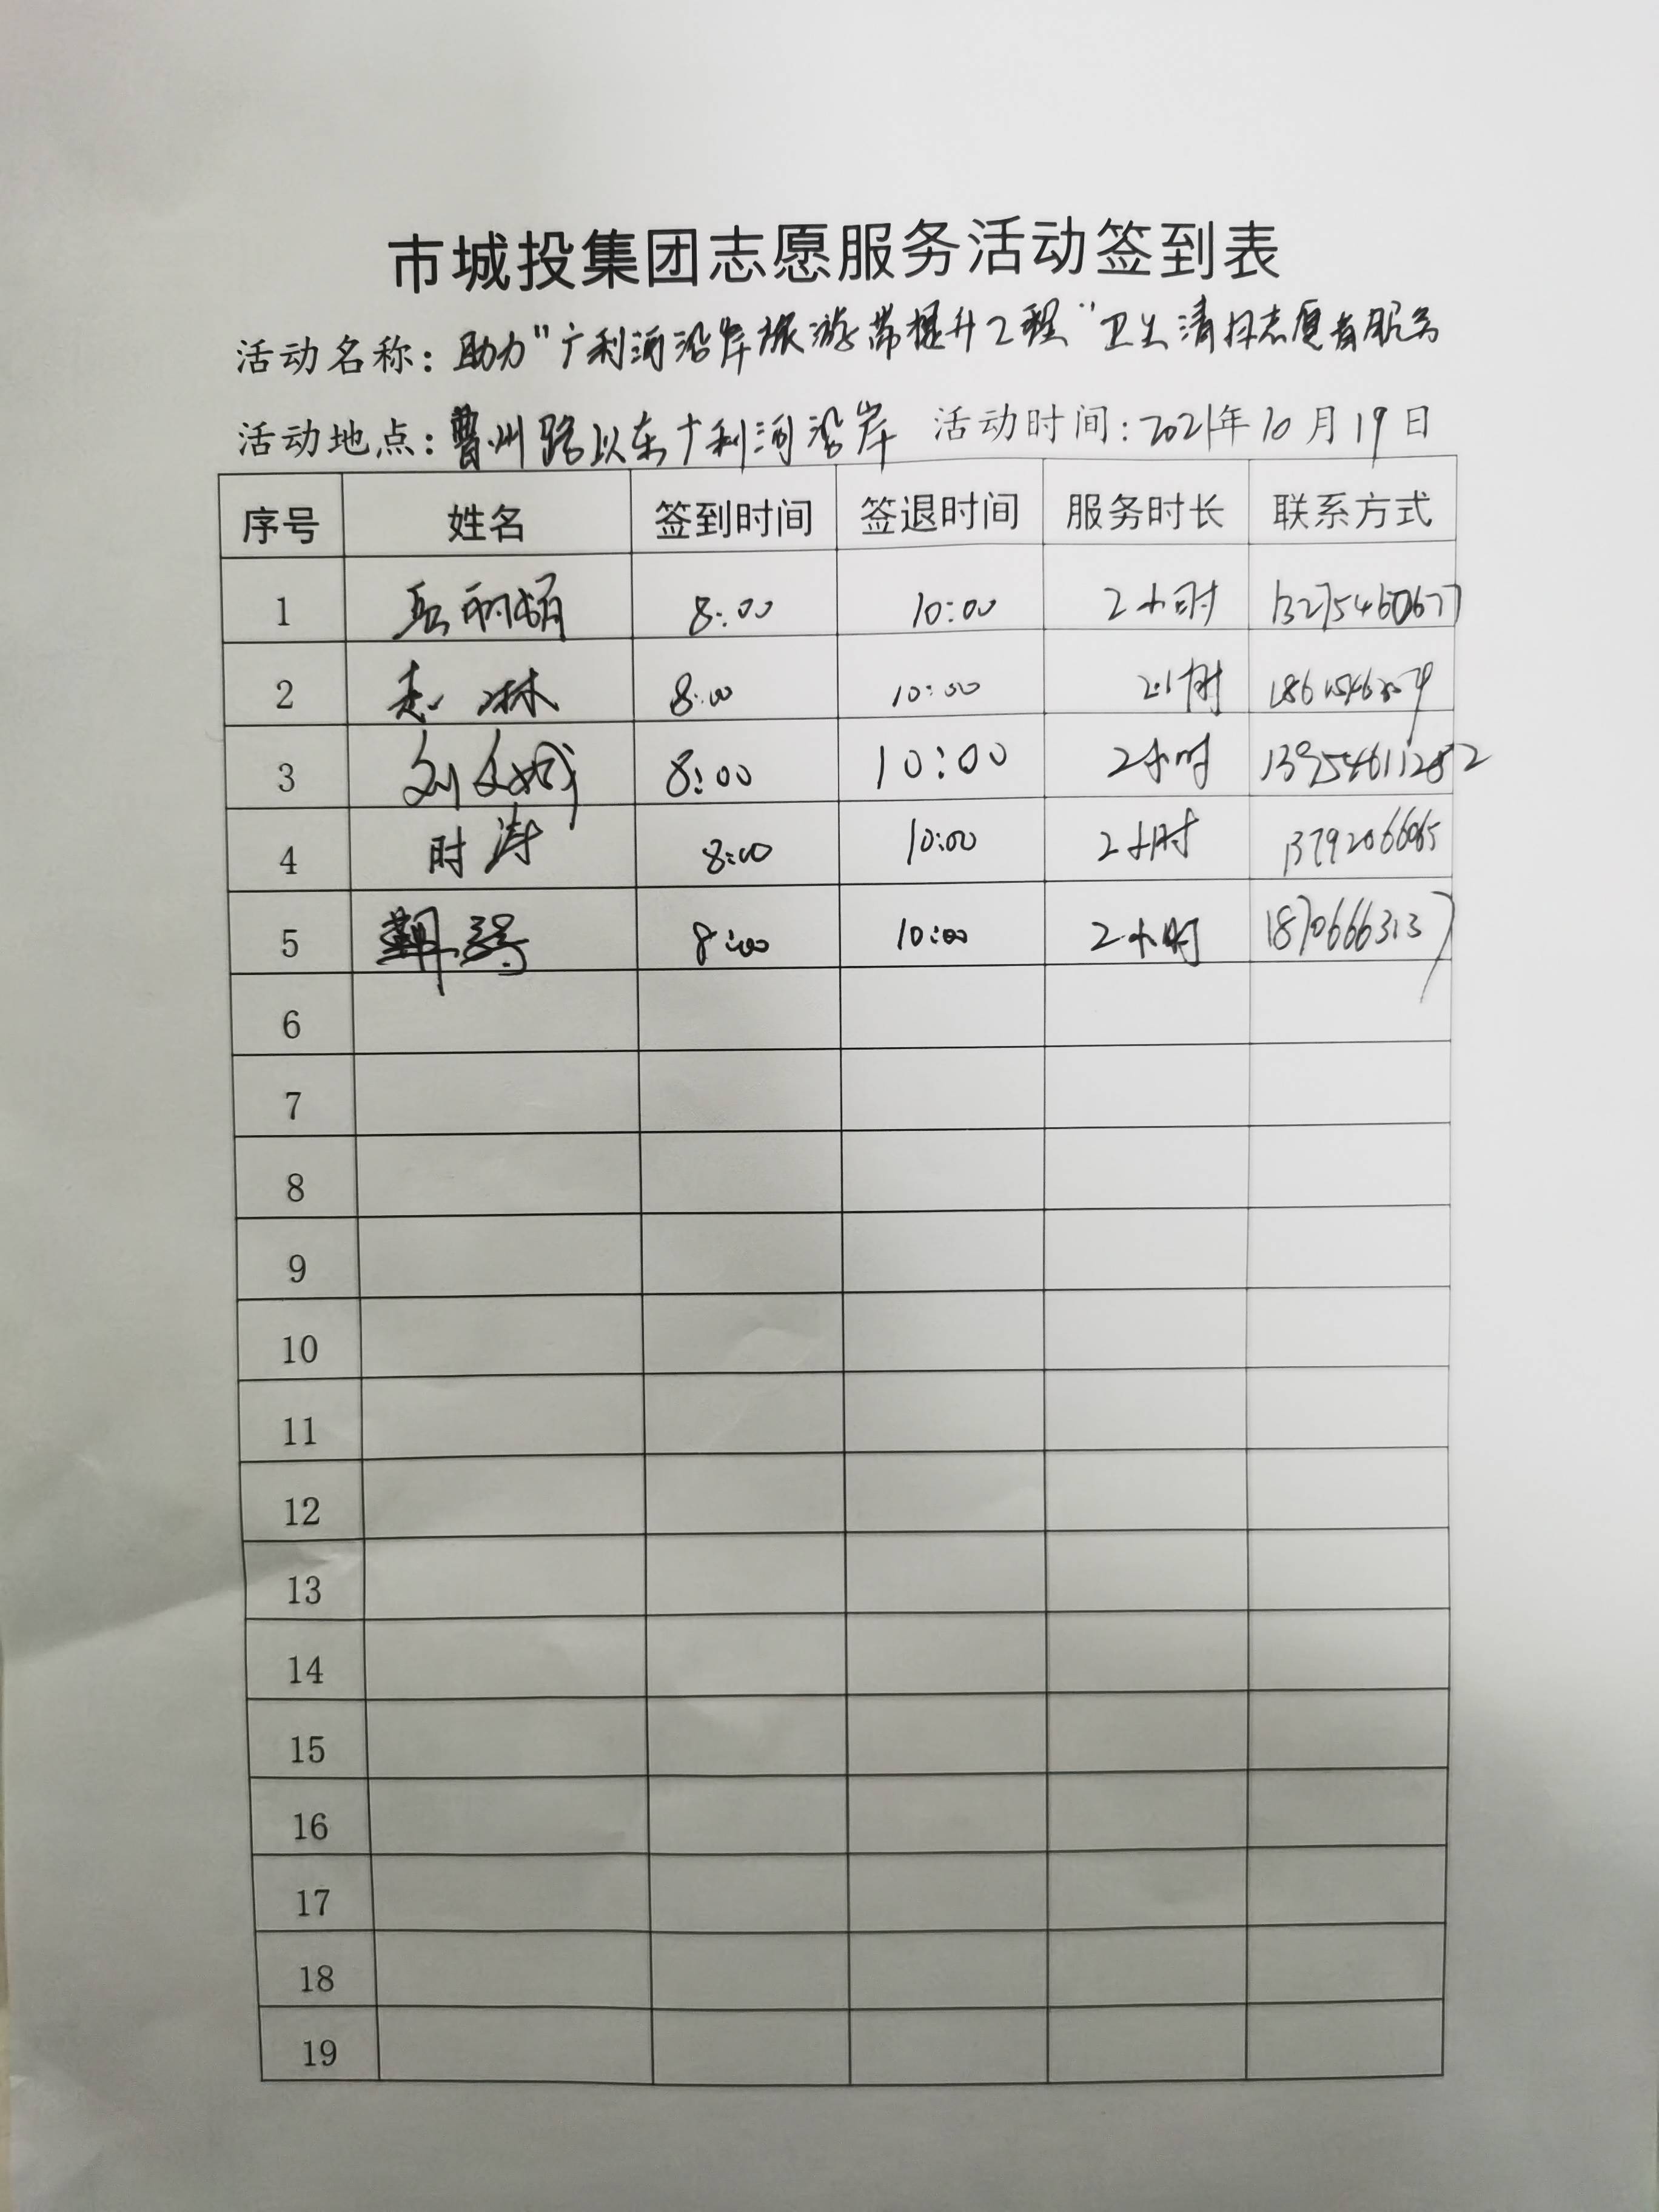 市城投集团志愿服务活动签到表
活动名称：助力"广利河沿岸旅游带提升工程"卫生清扫志愿者服务
活动地点：曹州路以东广利河沿岸 活动时间：2021年10月19日
序号 姓名 签到时间 签退时间 服务时长 联系方式
1 8:00 10:00 2小时 13275460677
2 8:00 10:00 2小时
3 8:00 10:00 2小时 13954611282
4 时涛 8:00 10:00 2小时 13792066065
5 8:00 10:00 2小时 18706663137
6
7
8
9
10
11
12
13
14
15
16
17
18
19